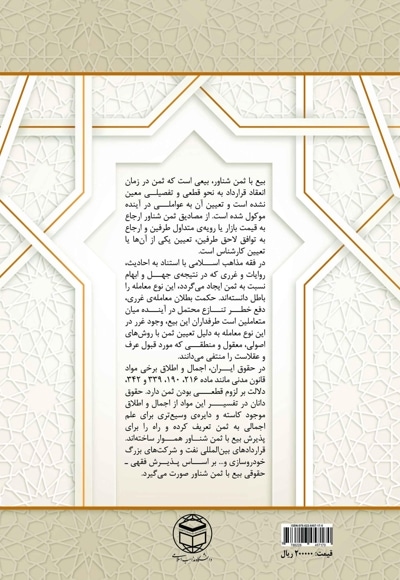 بیع با ثمن شناور، بیعی است که ثمن در زمان
انعقاد قرارداد به نحو قطعی و تفصیلی معین
نشده است و تعیین آن به عواملی در آینده
موکول شده است. از مصادیق ثمن شناور ارجاع
به قیمت بازار یا رویه‌ی متداول طرفین و ارجاع
به توافق لاحق طرفین، تعیین یکی از آن‌ها یا
تعیین کارشناس است.
در فقه مذاهب اسلامی با استناد به احادیث،
روایات و غرری که در نتیجه‌ی جهل و ابهام
نسبت به ثمن ایجاد می‌گردد، این نوع معامله را
باطل دانسته‌اند. حکمت بطلان معامله‌ی غرری،
دفع خطر تنازع محتمل در آینده میان
متعاملین است طرفداران این بیع، وجود غرر در
این نوع معامله به دلیل تعیین ثمن با روش‌های
اصولی، معقول و منطقی که مورد قبول عرف
و عقلاست را منتفی می‌دانند.
در حقوق ایران، اجمال و اطلاق برخی مواد
قانون مدنی مانند ماده ۲۱۶، ۱۹۰، ۳۳۹ و ۳۴۲،
دلالت بر لزوم قطعی بودن ثمن دارد. حقوق
دانان در تفسیر این مواد از اجمال و اطلاق
موجود کاسته و دایره‌ی وسیع‌تری برای علم
اجمالی به ثمن تعریف کرده و راه را برای
پذیرش بیع با ثمن شناور هموار ساخته‌اند.
قراردادهای بین‌المللی نفت و شرکت‌های بزرگ
خودروسازی و.. بر اساس پذیرش فقهی -
حقوقی بیع با ثمن شناور صورت می‌گیرد.
قیمت: ۲۰۰۰۰۰ ریال